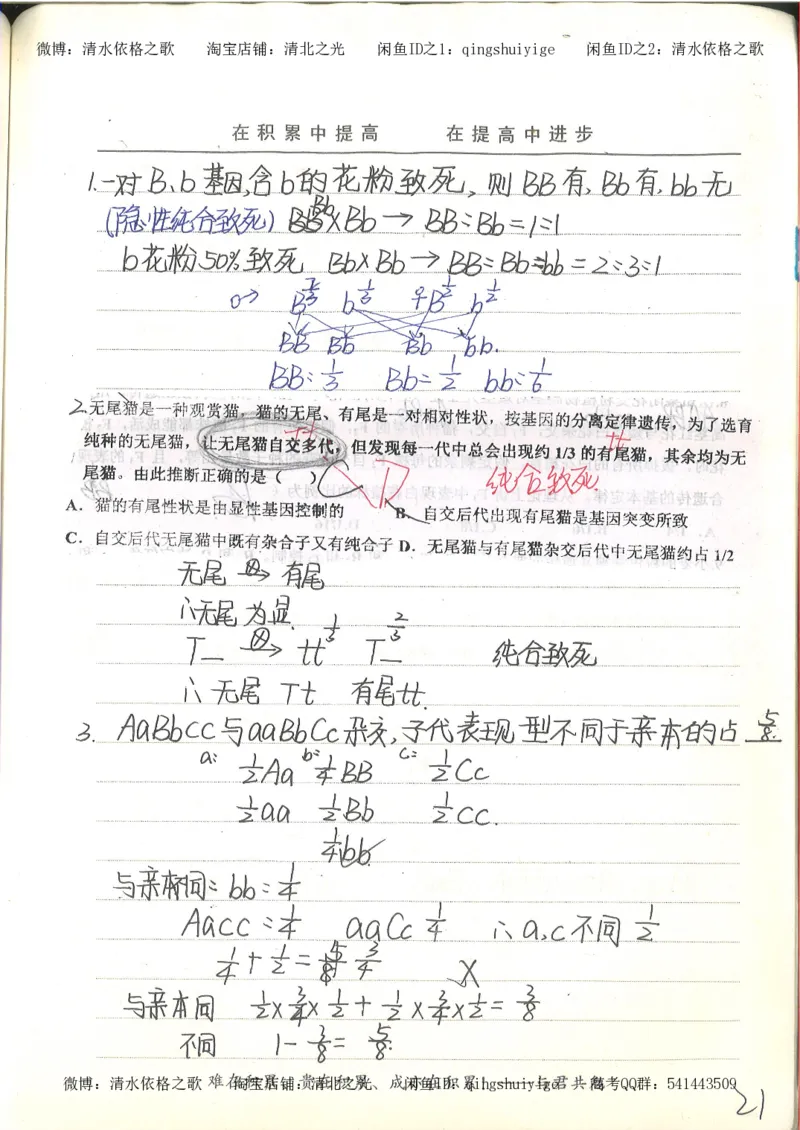 微博：清水依格之歌 淘宝店铺：清北之光 闲鱼ID之1：qingshuiyige 闲鱼ID之2：清水依格之歌
在积累中提高 在提高中进步
1.一对B、b基因,含b的花粉致死, 则BB有, Bb有, bb无
(隐性纯合致死) Bb×Bb → BB:Bb=1:1
b花粉50%致死 Bb×Bb → BB:Bb:bb = 2:3:1
♂ B 2/3 b 1/3 ♀B 1/2 b 1/2
BB Bb Bb bb.
BB: 1/3 Bb= 1/2 bb: 1/6
2.无尾猫是一种观赏猫，猫的无尾、有尾是一对相对性状，按基因的分离定律遗传，为了选育
纯种的无尾猫，让无尾猫自交多代，但发现每一代中总会出现约 1/3 的有尾猫，其余均为无
Tt tt
尾猫。由此推断正确的是（ ） 纯合致死
A．猫的有尾性状是由显性基因控制的 B．自交后代出现有尾猫是基因突变所致
C．自交后代无尾猫中既有杂合子又有纯合子 D．无尾猫与有尾猫杂交后代中无尾猫约占 1/2
无尾 ⊗→ 有尾
∴无尾为显.
T_ ⊗→ tt 1/3 T_ 2/3 纯合致死
∴ 无尾 Tt 有尾tt.
3. AaBbcc与aaBbCc杂交,子代表现型不同于亲本的占 5/8.
a: 1/2Aa b: 1/4BB C: 1/2Cc
1/2aa 1/2Bb 1/2cc.
1/4bb
与亲本不同: bb: 1/4
Aacc: 1/4 aaCc 1/4 ∴a,c不同 1/2
1/4+1/2= 3/4 ×
与亲本同 1/2×3/4×1/2+1/2×3/4×1/2=3/8
不同 1-3/8=5/8.
微博：清水依格之歌 淘宝店铺：清北之光 闲鱼ID：qingshuiyige 高考QQ群：541443509
21